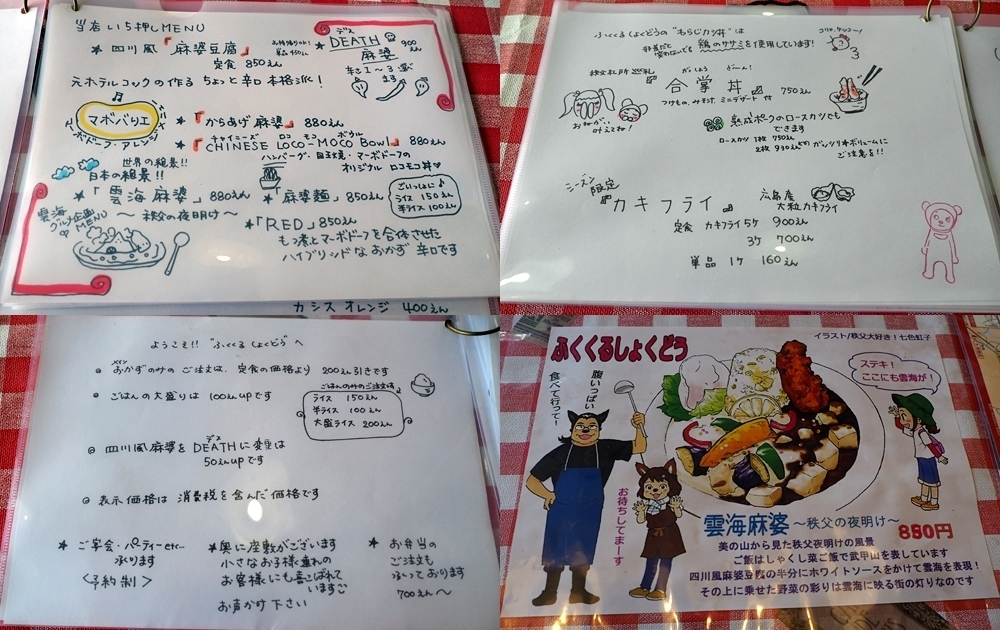 当店いち押しMENU
★ 四川風「麻婆豆腐」
定食 850えん
★ DEATH デス
麻婆 900えん
辛さ1〜3選べ
ます
元ホテルコックの作る ちょっと辛口 本格派!
マーボバリエ
マーボードーフ・アレンジ
★「からあげ麻婆」 880えん
チャイニーズ ロコ モコ ボウル
★「CHINESE LOCO-MOCO Bowl」 880えん
ハンバーグ・目玉焼・マーボードーフの
オリジナル ロコモコ丼♥
世界の絶景!!
日本の絶景!!
★「雲海麻婆」 880えん
〜秩父の夜明け〜
雲海
グルメ企画
MENU
★「麻婆麺」 850えん
ごいっしょに♪
ライス 150えん
半ライス 100えん
★「RED」 850えん
もつ煮とマーボードーフを合体させた
ハイブリッドなおかず 辛口です
カシスオレンジ 400えん
ふくくるしょくどうの"わらじカツ丼"は
鶏のササミを使用しています!
コケコッコー!
秩父札所巡礼
がっしょう どーん!
合掌丼 750えん
つけもの、みそ汁、ミニデザート付
おねがい
叶えてね!
熟成ポークのロースカツでも
できます
ロースカツ 1枚 750えん
2枚 930えん
ガッツリ★ボリュームに
ご注意を!!
シーズン
限定
カキフライ
広島産
大粒カキフライ
定食 カキフライ5ケ 900えん
3ケ 700えん
単品 1ケ 160えん
ようこそ!! "ふくくるしょくどう"へ
メイン
◎ おかずのみのご注文は、定食の価格より 200えん引きです
◎ ごはんの大盛りは 100えんupです
ごはんのみのご注文は
ライス 150えん
半ライス 100えん
大盛ライス 200えん
デス
◎ 四川風麻婆をDEATHに変更は
50えんupです
◎ 表示価格は消費税を含んだ価格です
★ ご宴会・パーティーetc…
承ります
<予約制>
★奥に座敷がございます
小さなお子様連れの
お客様にも喜ばれて
います
お声かけ下さい
★ お弁当の
ご注文も
うけっております
700えん〜
ふくくるしょくどう
イラスト/秩父大好き!七色虹子
腹いっぱい
食べて行って!
お待ちしてまーす
ステキ!
ここにも雲海が!
雲海麻婆 〜秩父の夜明け〜 850円
美の山から見た秩父夜明けの風景
ご飯はしゃくし菜ご飯で武甲山を表しています
四川風麻婆豆腐の半分にホワイトソースをかけて雲海を表現!
その上に乗せた野菜の彩りは雲海に映る街の灯りなのです